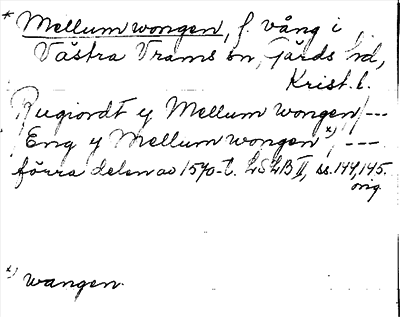 * Mellum wongen, f. vång i
Västra Vrams sn, Gärds hd,
Krist. l.
Rugiordt y Mellum wongen, ---
Eng y Mellum wongen x) ---
förra delen av 1570-t. LSLB II, ss. 144, 145.
orig.
x) wangen.